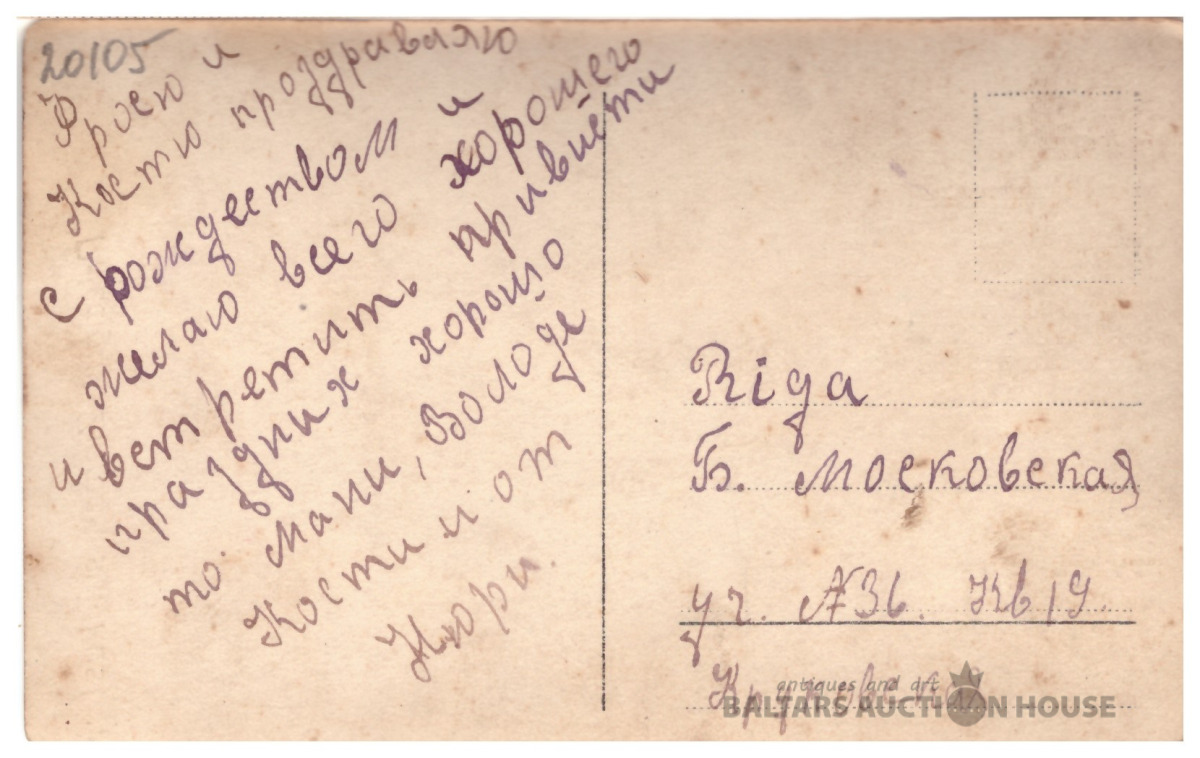 20105
Фросю и
Костю проздравляю
с рождеством и
желаю всего хорошего
и встретить
праздник хорошо
привиети
то Мани, Володе
Кости и от
Нюри.
Riga
Б. Московская
уч. №36. Кв 19.
antiques and art
BALTARS AUCTION HOUSE